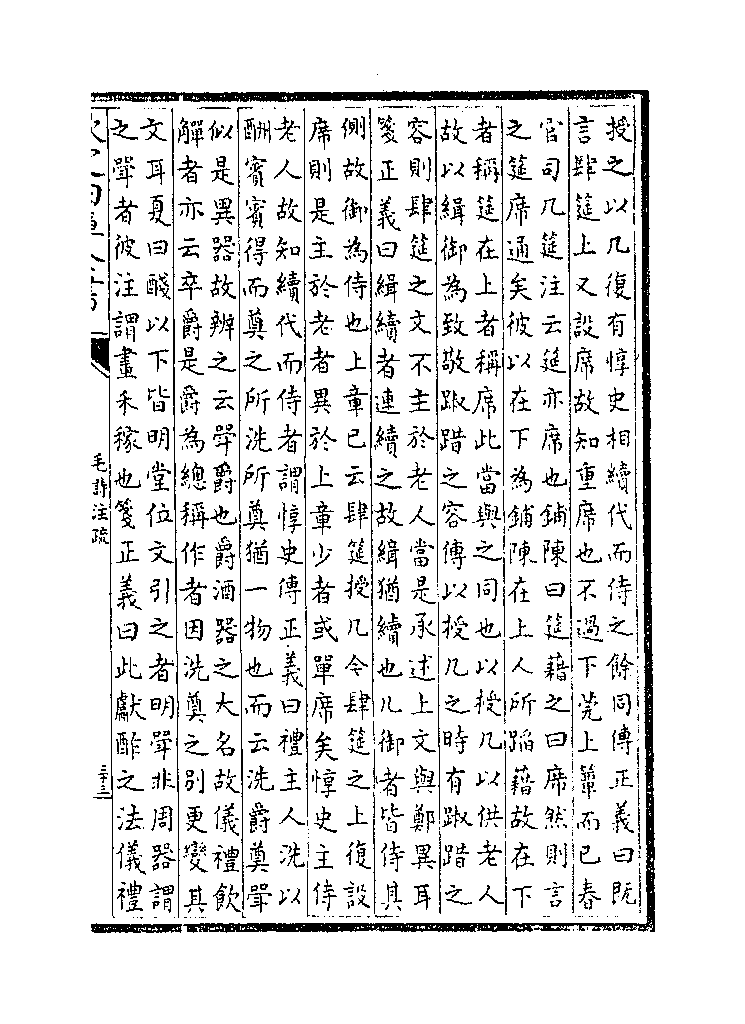 授之以几復有惇史相續代而侍之餘同傳正義曰既
言肆筵上又設席故知重席也不過下莞上簟而已春
官司几筵注云筵亦席也鋪陳曰筵藉之曰席然則言
之筵席通矣彼以在下為鋪陳在上人所蹈藉故在下
者稱筵在上者稱席此當與之同也以授几以供老人
故以緝御為致敬踧踖之容傳以授几之時有踧踖之
容則肆筵之文不主於老人當是承述上文與鄭異耳
箋正義曰緝續者連續之故緝猶續也凡御者皆侍其
側故御為侍也上章已云肆筵授几令肆筵之上復設
席則是主於老者異於上章少者或單席矣惇史主侍
老人故知續代而侍者謂惇史傳正義曰禮主人洗以
酬賓賓得而奠之所洗所奠猶一物也而云洗爵奠斝
似是異器故辨之云斝爵也爵酒器之大名故儀禮飲
觶者亦云卒爵是爵為總稱作者因洗奠之別更變其
文耳夏曰醆以下皆明堂位文引之者明斝非周器謂
之斝者彼注謂畫禾稼也箋正義曰此獻酢之法儀禮
毛詩注疏
三十三